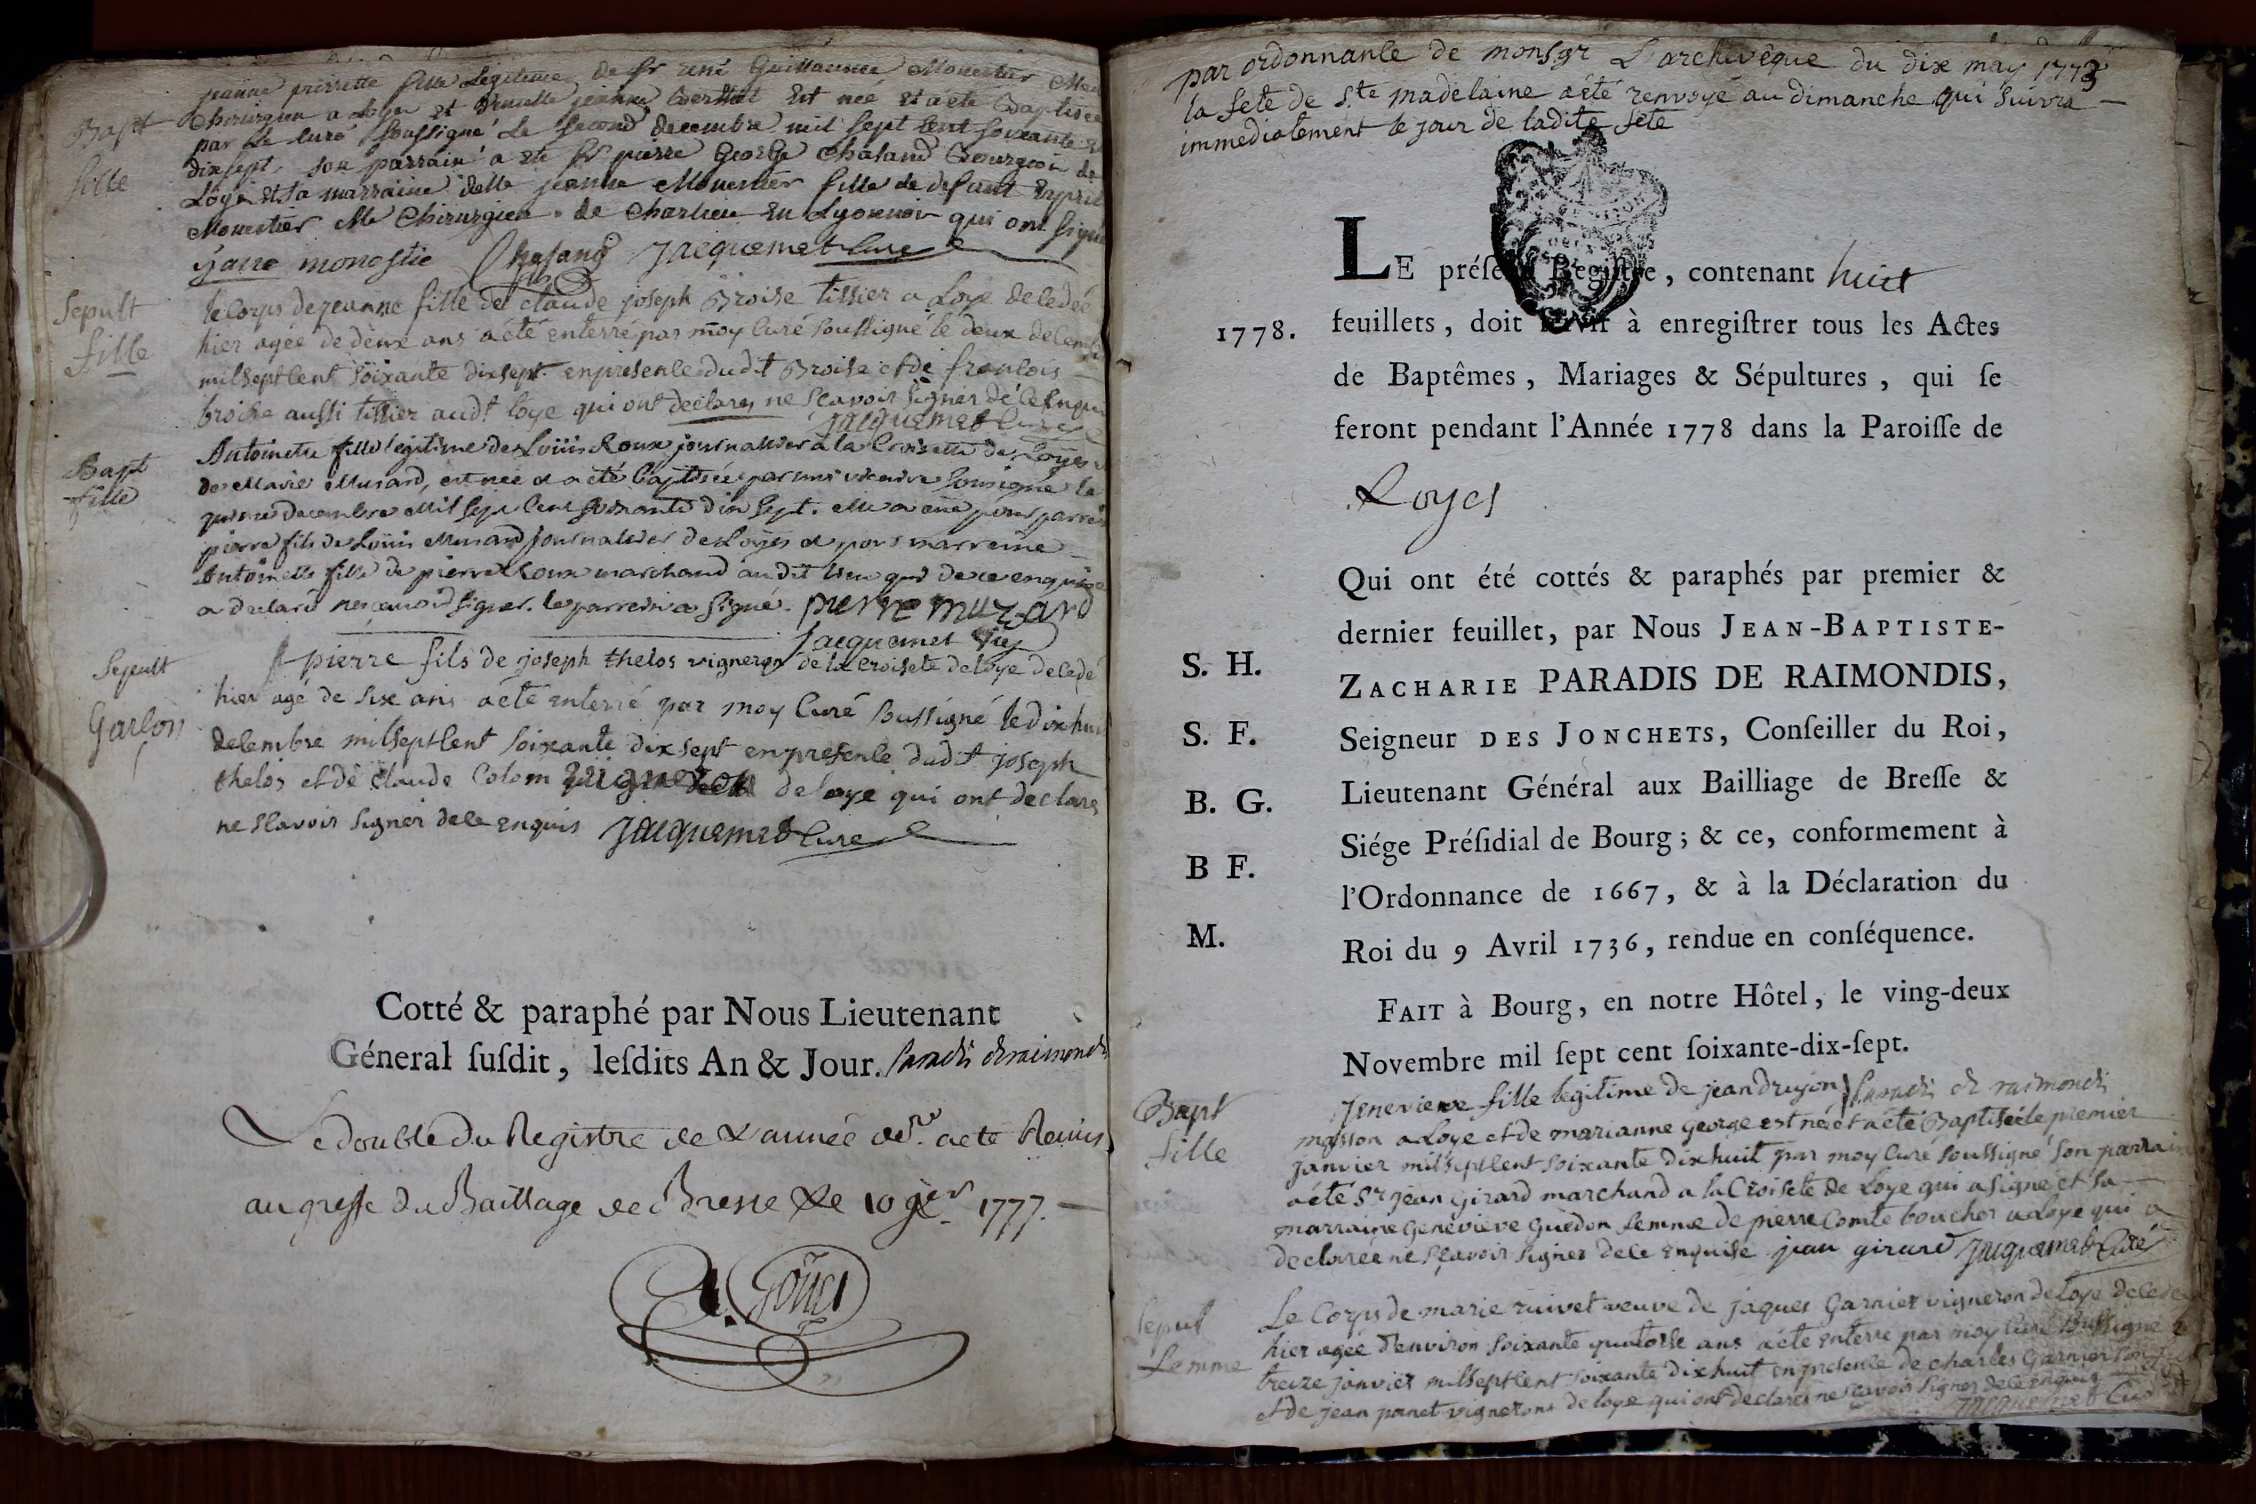 jeanne pierrette fille Legitime de Sr rené Guillaume Monestier Me
Bapt
fille
Chirurgien a Loye et Demelle jeanne Berthet Est nee et a ete Baptisee
par le curé soussigné Le second decembre mil sept cent soixante et
dix sept, son parrain a ete Sr pierre George Chasand Bourgeois de
Loye et sa marraine delle jeanne Monestier fille de defunt
Monestier Me Chirurgien de Charlieu En Lyonnois qui ont signé
Chasand Jacquemet Curé
Sepult
fille
le Corps de jeanne fille de claude joseph Broise tissier a Loye decedée
hier agée de deux ans a été enterré par moy Curé soussigné le deux decembre
mil sept cent soixante dix sept en presence dudit Broise et de francois
broise aussi tissier audt loye qui ont declarer ne scavoir signer de ce enquis
Jacquemet Curé
Bapt
fille
Antoinette fille legitime de Loüis Roux journallier a la Croisette de Loyes &
de Marie Musard, est née & a été baptisée par moi vicaire soussigné le
quinze decembre Mil sept Cent soixante dix sept. elle a eue pour parrein
pierre fils de Loüis Musard journalier de Loyes & pour marreine
Antoinette fille de pierre Roux marchand au dit lieu qui de ce enquise
a declaré ne scavoir signer. le parrein a signé. pierre muzard
Jacquemet vic
Sepult
Garcon
pierre fils de joseph thelos vigneron de la croisete de loye decedé
hier agé de six ans a été enterré par moy Curé soussigné le dix huit
decembre mil sept cent soixante dix sept en presence dudt joseph
thelos et de Claude Colom vigneron de loye qui ont declarer
ne scavoir signer de ce enquis Jacquemet Curé
Cotté & paraphé par Nous Lieutenant
Géneral ſuſdit, leſdits An & Jour. Paradis deraimondis
Le double du Registre de L'année de. a ete Remis
au greffe du Baillage de Bresse Le 10 1777.
par ordonnance de monsgr L'archevêque du dix may 1773
la fete de s.te madelaine a été renvoyé au dimanche qui suivra
immediatement le jour de ladite fête
LE préſent Regiſtre, contenant huit
1778.
feuillets, doit ſervir à enregiſtrer tous les Actes
de Baptêmes, Mariages & Sépultures, qui ſe
feront pendant l'Année 1778 dans la Paroiſſe de
Loyes
Qui ont été cottés & paraphés par premier &
dernier feuillet, par Nous JEAN-BAPTISTE-
S. H.
ZACHARIE PARADIS DE RAIMONDIS,
S. F.
Seigneur DES JONCHETS, Conſeiller du Roi,
B. G.
Lieutenant Général aux Bailliage de Breſſe &
Siége Préſidial de Bourg; & ce, conformement à
B F.
l'Ordonnance de 1667, & à la Déclaration du
M.
Roi du 9 Avril 1736, rendue en conſéquence.
FAIT à Bourg, en notre Hôtel, le ving-deux
Novembre mil ſept cent ſoixante-dix-ſept.
Paradis de raimondis
Bapt
fille
Genevieve fille legitime de jean drujon
masson a Loye et de marianne george est neé et a été Baptisée le premier
janvier mil sept cent soixante dix huit par moy Curé soussigné son parrain
a été Sr jean Girard marchand a la Croisete de Loye qui a signé et sa
marraine Genevieve Guedon femme de pierre Comte boucher a Loye qui a
declareé ne scavoir signer de ce enquise jean girard Jacquemet Curé
Sepult
femme
Le Corps de marie ruivet veuve de jaques Garnier vigneron de loye decedée
hier ageé d'environ soixante quatorse ans a été enterré par moy Curé soussigné le
treize janvier mil sept cent soixante dix huit en presence de charles Garnier son fils
et de jean panet vignerons de loye qui ont declarer ne scavoir signer de ce enquis
Jacquemet Curé